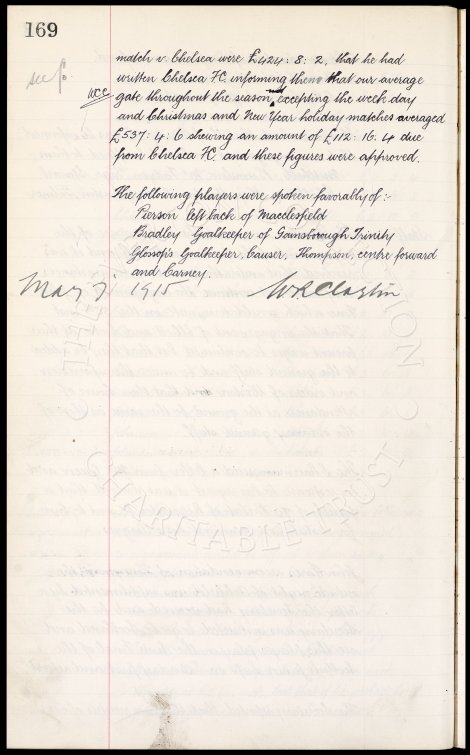 169
match v. Chelsea were £424: 8: 2, that he had
written Chelsea FC informing them that our average
W.C.C.
gate throughout the season, not excepting the week day
and Christmas and New Year holiday matches averaged
£537: 4: 6 shewing an amount of £112: 16: 4 due
from Chelsea FC and these figures were approved.
The following players were spoken favorably of:-
Pierson left back of Macclesfield
Bradley Goalkeeper of Gainsborough Trinity
Glossop's Goalkeeper, Causer, Thompson, centre forward
and Carney.
May 7 1915
CHARITABLE TRUST